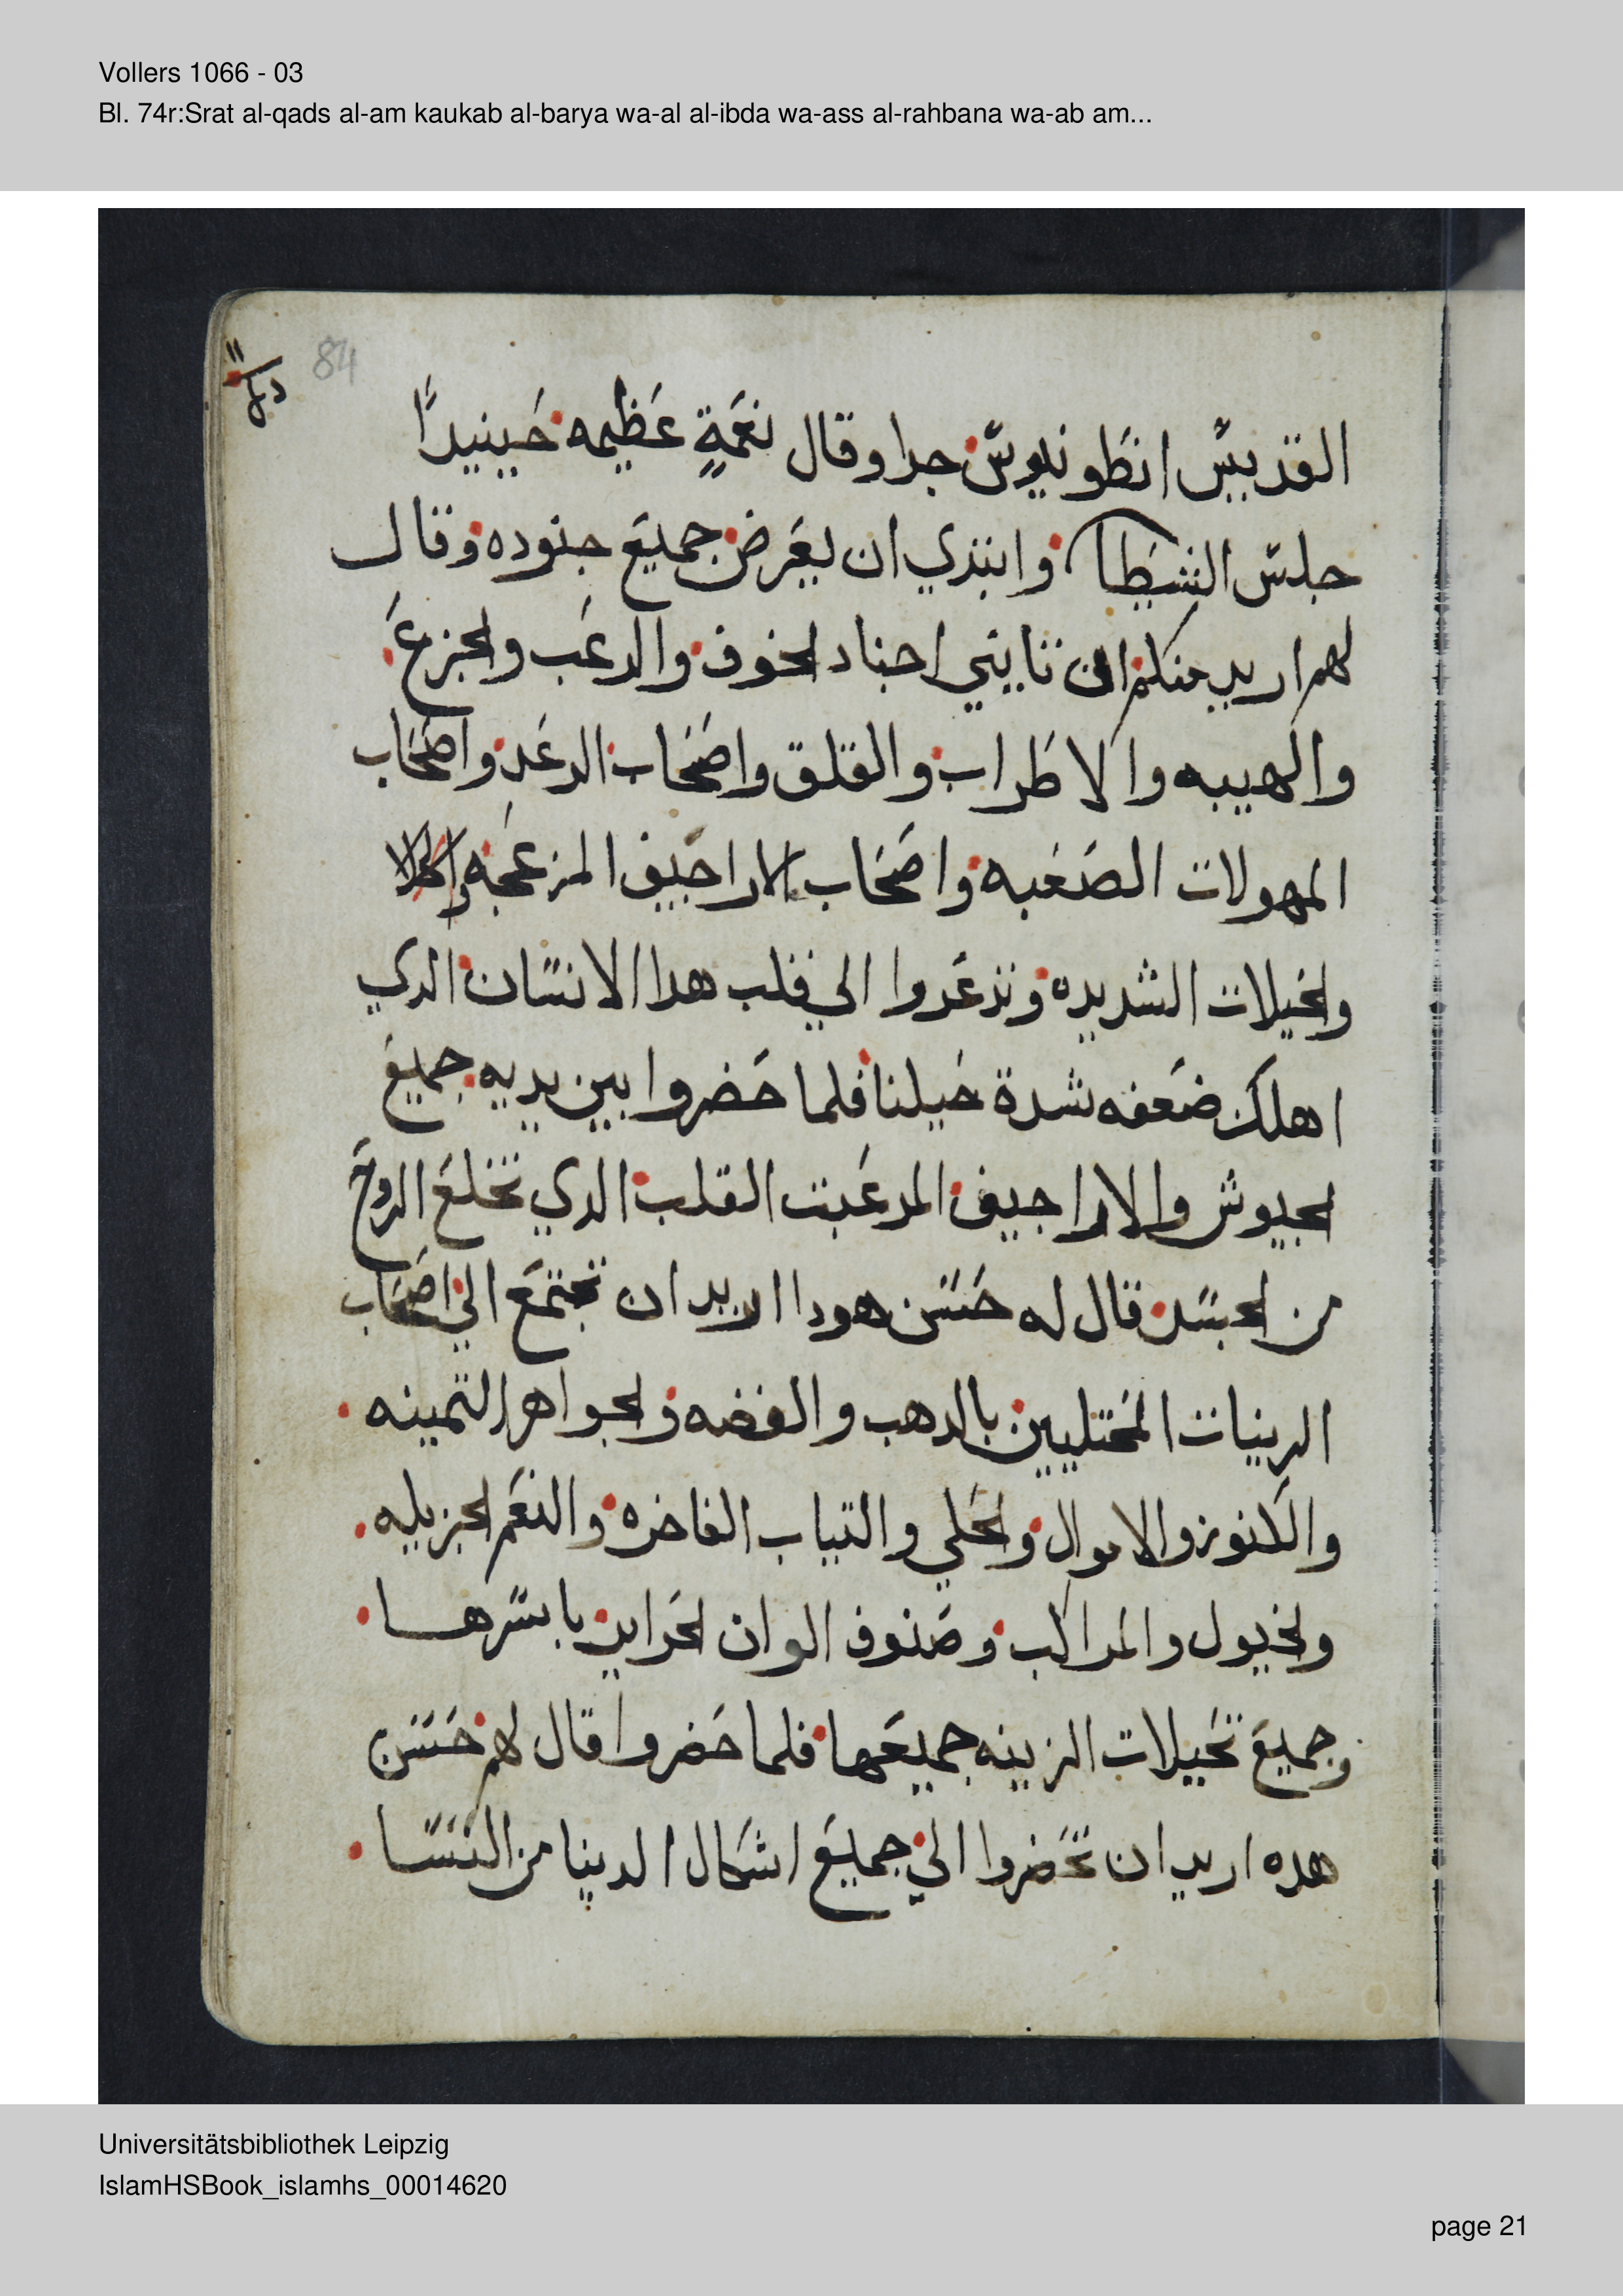 Vollers 1066 - 03
Bl. 74r:Srat al-qads al-am kaukab al-barya wa-al al-ibda wa-ass al-rahbana wa-ab am...
84
القديس انطونيوس جدا وقال نغمةٍ عظيمه حينيدًا
جلس الشيطا وابتدي ان يعرض جميع جنوده وقال
لهم اريد منكم ان تاييتي اجناد لخوف والرعب ولجزع
والهيبه والاطراب والقلق واصحاب الرعد واصحاب
المهولات الصعبه واصحاب الاراجيف المزعجه
ولخيلات الشديده وترعدوا الي قلب هدا الانسان الدي
اهلك ضعفه شدة خيلنا فلما حضروا بين يديه جميع
لجيوش والاراجيف المرعبت القلب الدي تخلع الروح
من لجسد قال له حسن هودا اريد ان تجتمع الي اصحاب
الرينات المختليين بالدهب والفضه ولجواهر التمينه
والكنوز والاموال ولحلي والتياب الفاخره والنعم لجزيله
ولخيول والمراكب وصنوف الوان لحراير باسرها
وجميع تخيلات الزينه جميعها فلما حضروا قال لهم حسن
هده اريد ان تحضروا الي جميع اشكال الدنيا من النسا
Universitätsbibliothek Leipzig
IslamHSBook_islamhs_00014620
page 21